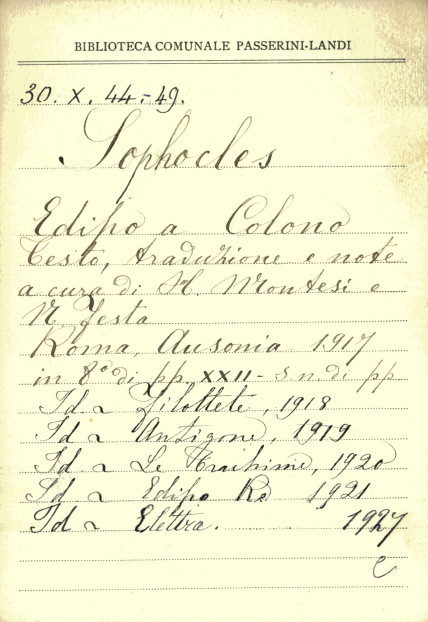 BIBLIOTECA COMUNALE PASSERINI-LANDI
30. X. 44-49.
Sophocles
Edipo a Colono
Testo, traduzione e note
a cura di H. Montesi e
N. Festa
Roma, Ausonia 1917
in 8° di pp. XXII - s n. di pp
Id ~ Filottete, 1918
Id ~ Antigone, 1919
Id ~ Le Trachinie, 1920
Id ~ Edipo Re 1921
Id ~ Elettra. 1927